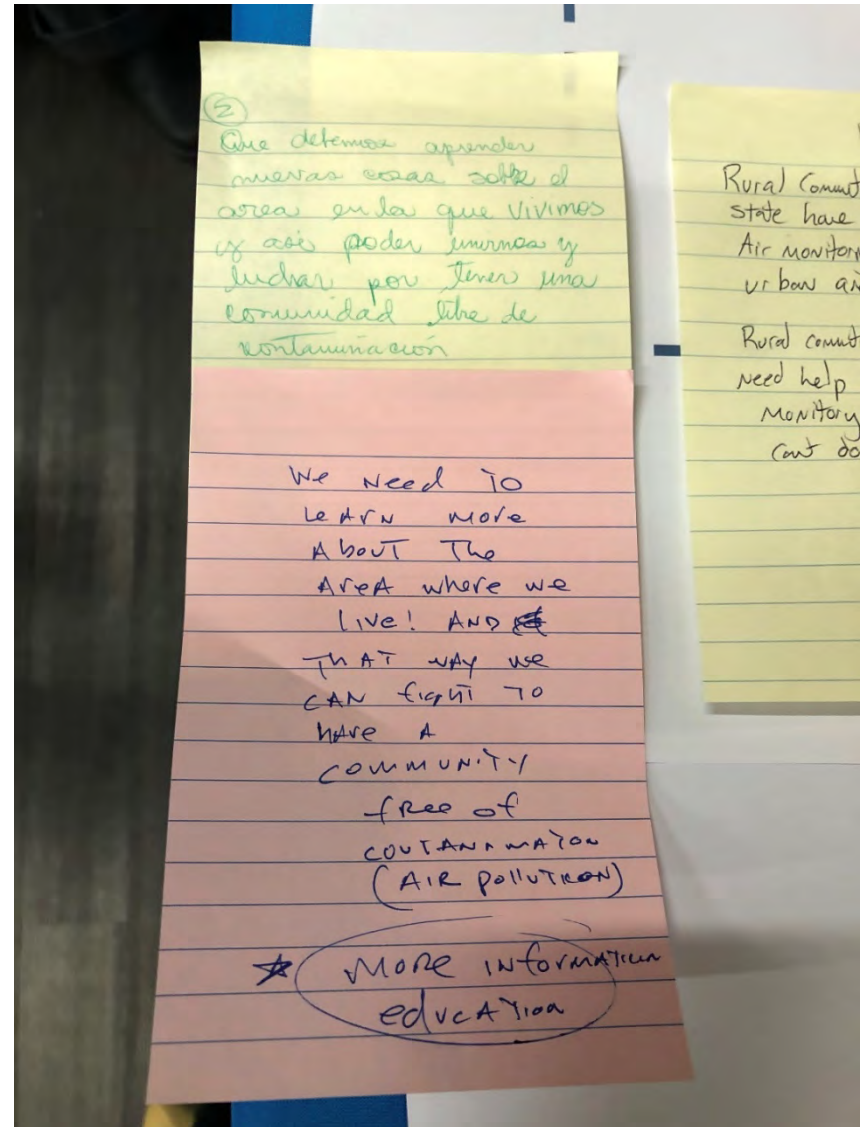 2
Que debemos aprender
nuevas cosas sobre el
area en la que vivimos
y asi poder unirnos y
luchar por tener una
comunidad libre de
contaminación
We Need To
LeArN More
About The
AreA where we
live! AND
THAT wAy we
CAN fight To
hAve A
community
free of
(AIR pollution)
More information
education
Rural Commut
state have
Air Monitorin
urban an
Rural commut
Need help
Monitory
cant do